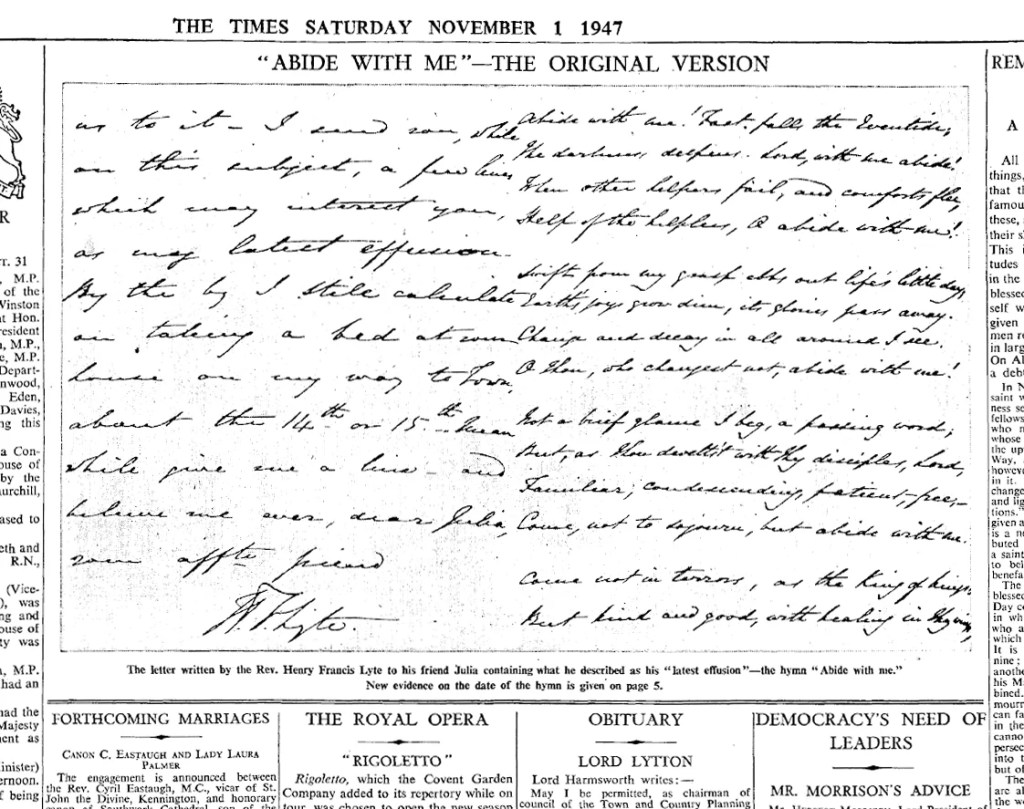 THE TIMES SATURDAY NOVEMBER 1 1947
R
T. 31
, M.P.
of the
Winston
t Hon.
resident
, M.P.,
e, M.P.
Depart-
nwood,
Eden,
Davies,
ng this
a Con-
ouse of
by the
urchill,
ased to
eth and
R.N.,
(Vice-
), was
ng and
ouse of
ty was
, M.P.
had an
had the
Majesty
ment as
inister)
ernoon.
f being
"ABIDE WITH ME"—THE ORIGINAL VERSION
as to it – I send you, while
on this subject, a few lines
which may interest you,
as my latest effusion.
By the by I still calculate
on taking a bed at your
house on my way to Town,
about the 14th or 15th. Mean
while give me a line – and
believe me ever, dear Julia,
your affte friend
H. F. Lyte.
Abide with me! Fast falls the Eventide;
The darkness deepens. Lord, with me abide!
When other helpers fail, and comforts flee,
Help of the helpless, O abide with me!
Swift from my grasp ebbs out life's little day;
Earth's joys grow dim, its glories pass away.
Change and decay in all around I see.
O Thou, who changest not, abide with me!
Not a brief glance I beg, a passing word;
But, as Thou dwell'st with Thy disciples, Lord,
Familiar, condescending, patient, free,–
Come, not to sojourn, but abide with me.
Come not in terrors, as the King of kings;
But kind and good, with healing in Thy wings,
The letter written by the Rev. Henry Francis Lyte to his friend Julia containing what he described as his "latest effusion"—the hymn "Abide with me."
New evidence on the date of the hymn is given on page 5.
FORTHCOMING MARRIAGES
CANON C. EASTAUGH AND LADY LAURA
PALMER
The engagement is announced between
the Rev. Cyril Eastaugh, M.C., vicar of St.
John the Divine, Kennington, and honorary
canon of Southwark Cathedral, son of the
THE ROYAL OPERA
"RIGOLETTO"
Rigoletto, which the Covent Garden
Company added to its repertory while on
tour, was chosen to open the new season
OBITUARY
LORD LYTTON
Lord Harmsworth writes:—
May I be permitted, as chairman of
council of the Town and Country Planning
DEMOCRACY'S NEED OF
LEADERS
MR. MORRISON'S ADVICE
REM
A
All
things,
that th
famou
these,
their s
This i
tudes
in the
blessed
self w
given
men re
in larg
On Al
a debt
In N
saint w
ness se
fellows
who n
whose
the up
Way,
howeve
in it.
change
and lig
tions."
given a
is a ne
buted
a saint
to bei
benefa
The
blessed
Day co
in whi
who a
which
It is
nine;
anothe
his Ma
bined.
mourn
can fa
in the
cannot
persec
into t
but of
The
are al